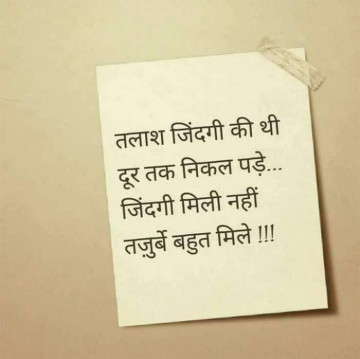 तलाश जिंदगी की थी
दूर तक निकल पड़े...
जिंदगी मिली नहीं
तज़ुर्बे बहुत मिले !!!